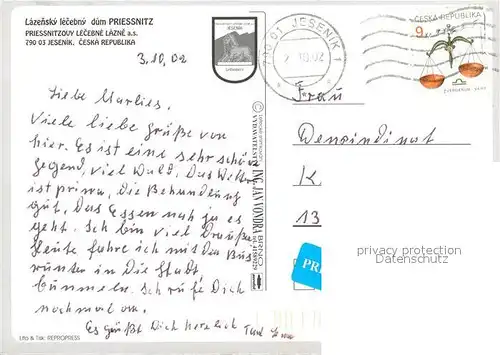 Lázeňský léčebný dům PRIESSNITZ
PRIESSNITZOVY LÉČEBNÉ LÁZNĚ a.s.
790 03 JESENÍK, ČESKÁ REPUBLIKA
3.10.02
Liebe Marlies,
Viele liebe Grüße von
hier. Es ist eine sehr schöne
Gegend, viel Wald. Das Wetter
ist prima, die Behandlung
gut, das Essen nah ja es
geht. Ich bin viel Draußen
Heute fahre ich mit den Bus
runter in die Stadt,
bummeln. Ich rufe Dich
nochmal an.
Es grüßt Dich herzlich
Lito & Tisk: REPROPRESS
JESENÍK
VYDAVATELSTVÍ ING. JAN VONDRA BRNO
790 01 JESENÍK 1
ČESKÁ REPUBLIKA
9
Frau
K
13
PRI
privacy protection
Datenschutz